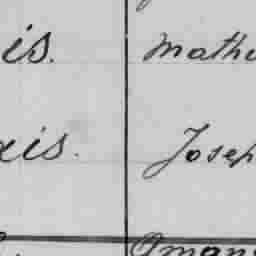 is. Mathe
xis. Josep
Oman